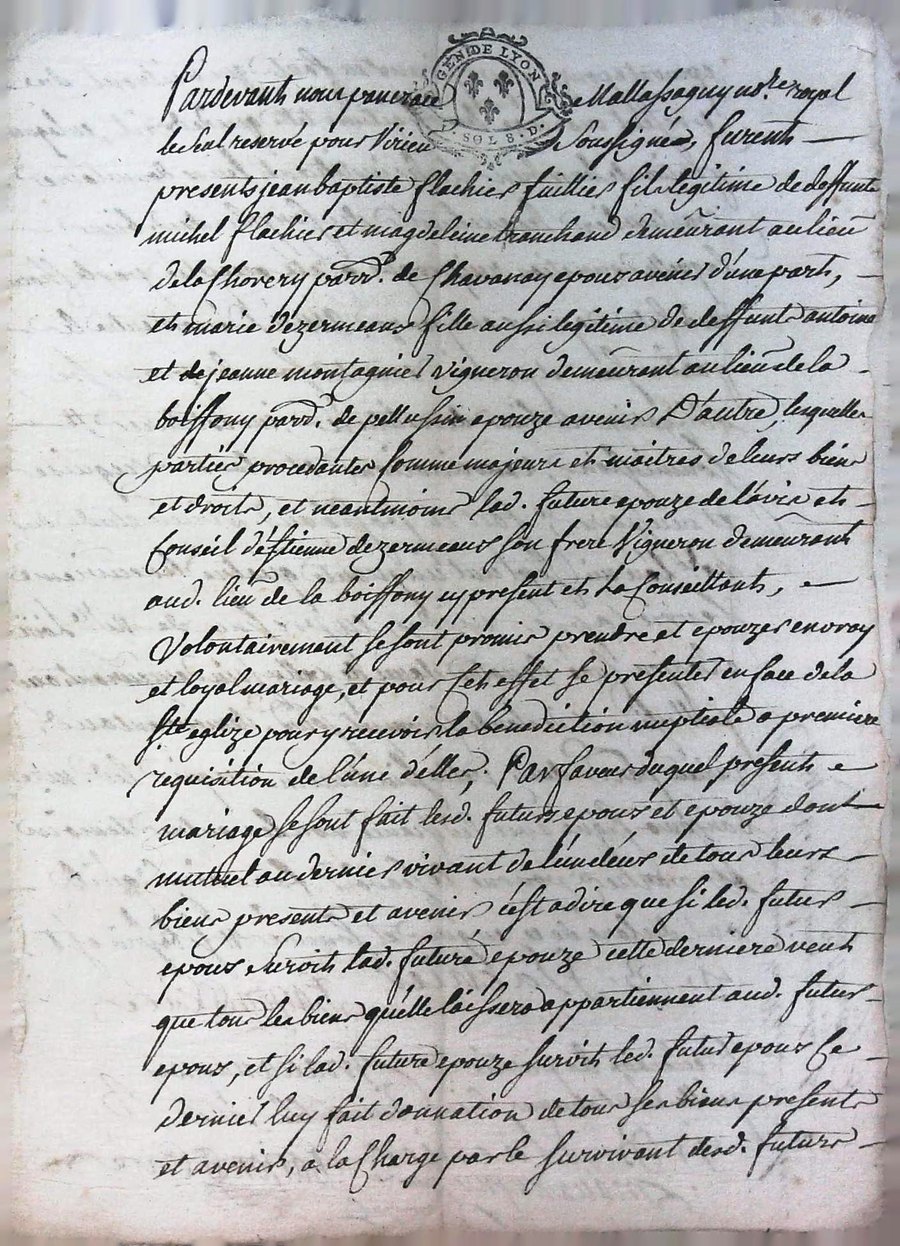 GEN. DE LYON
SOL 8. D.
Pardevant nous pancrace Mallassagny no.re royal
le Seul reservé pour Virieu Soussigné, furent
presents jean baptiste flachier fils legitime de deffunts
michel flachier et magdeleine tranchand demeurant au lieu
de la Chorery parr. de Chavanay epoux avenir d'une part,
et marie dezermeaux fille aussi legitime de deffunts antoine
et de jeanne montagnier vigneron demeurant au lieu de la
boissony parr. de pellussin epouze avenir D'autre, lesquelles
parties procedantes Comme majeurs et maitres de leurs biens
et droits, et neantmoins lad. future epouze de l'avis et
Conseil d'éstienne dezermeaux son frere Vigneron demeurant
aud. lieu de la boissony cy present et La Conseillant,
Volontairement se sont promis prendre et epouzer en vray
et loyal mariage, et pour Cet effet se presenter en face de la
S.te eglize pour y recevoir la benediction nuptiale a premiere
requisition de l'une d'elles; Par faveur duquel present
mariage se sont fait lesd. futurs epoux et epouze dont
mutuel au dernier vivant de l'un deux de tous leurs
biens presents et avenir c'est a dire que si led. futur
epoux Survit lad. future epouze cette derniere veut
que tous les biens qu'elle laissera appartiennent aud. futur
epoux, et si lad. future epouze survit led. futur epoux Ce
dernier luy fait donnation de tous ses biens presents
et avenir, a la Charge par le survivant desd. futurs